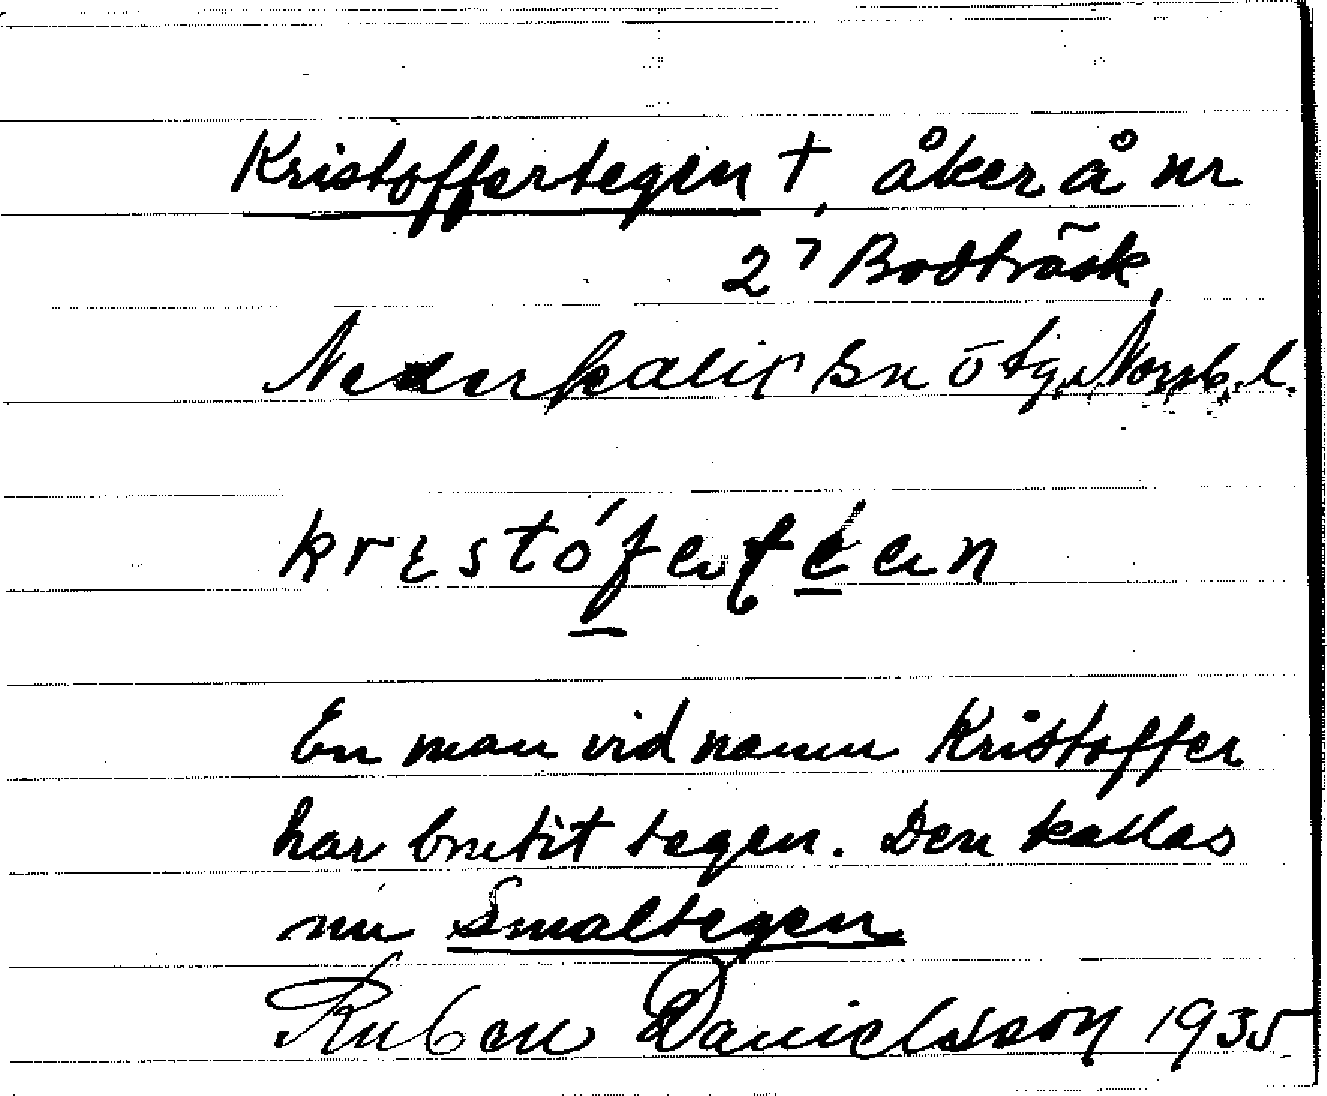 Kristoffertegen †, åker å nr
27 Bodträsk,
Nederkalix sn ö tg, Norrb. l.
En man vid namn Kristoffer
har brutit tegen. Den kallas
nu Smaltegen
Ruben Danielsson 1935